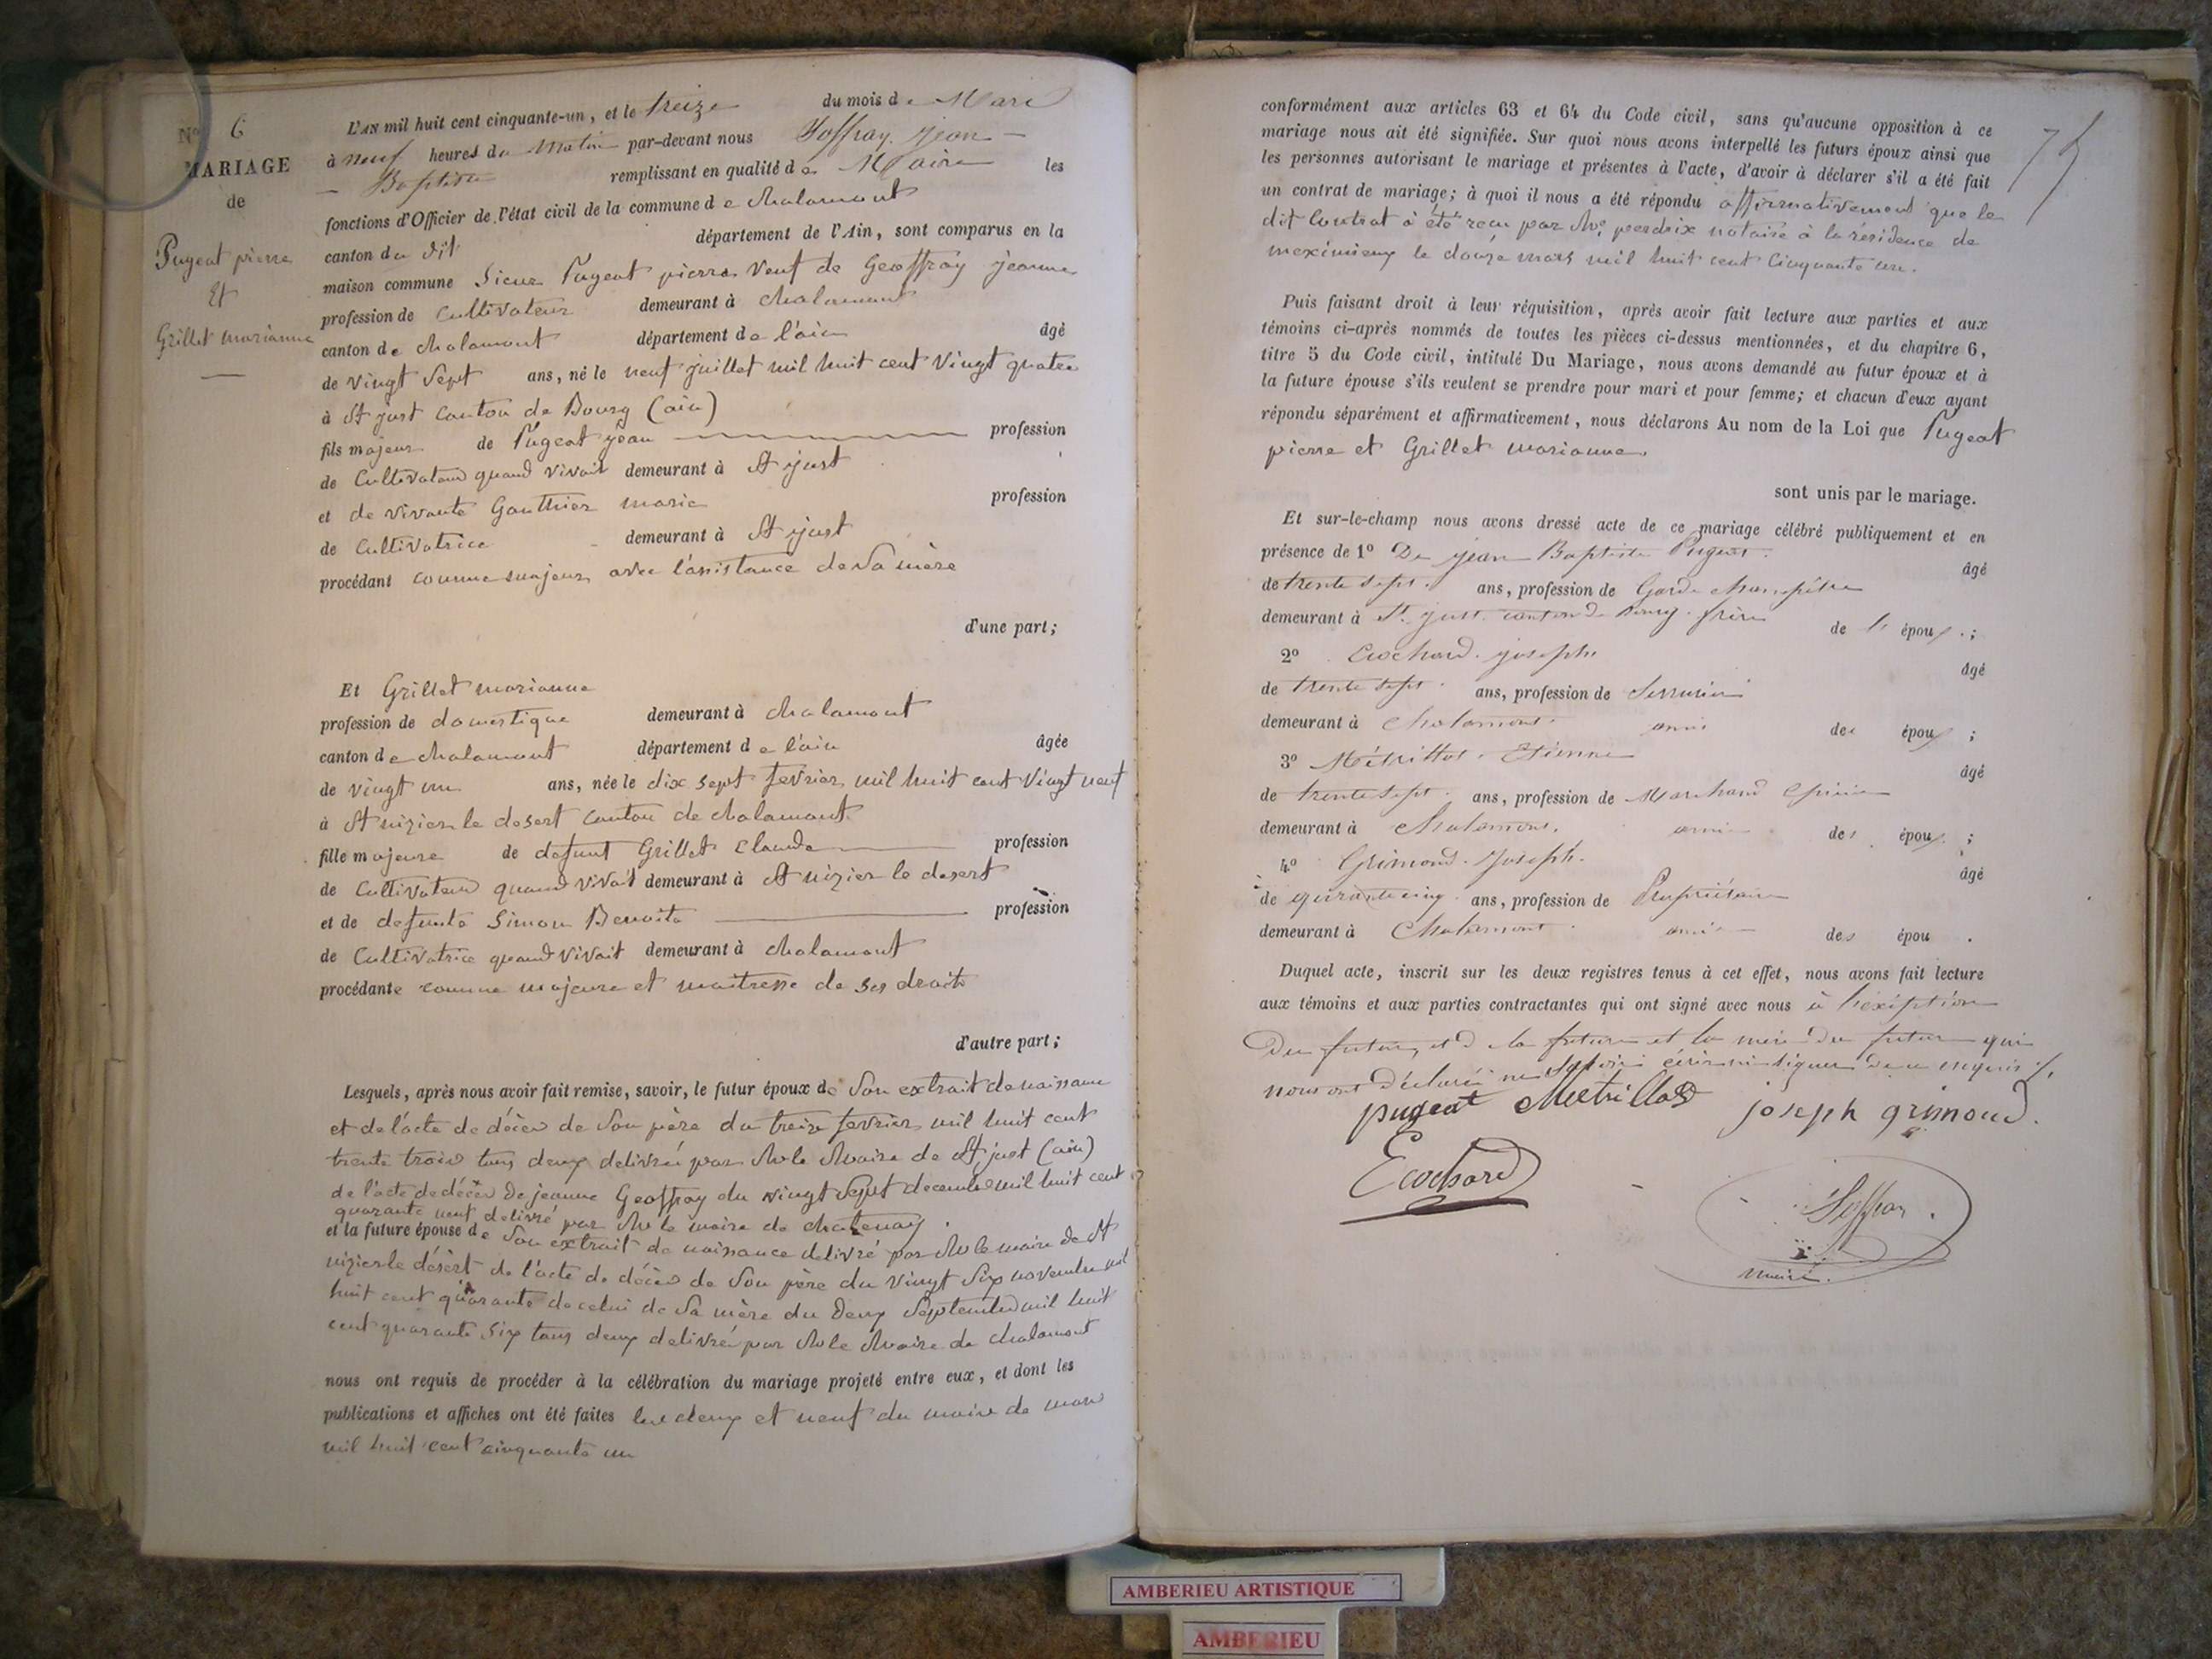 N° 6
MARIAGE
de
Pugeat pierre
Et
Grillet marianne
L'AN mil huit cent cinquante-un, et le treize du mois de Mars
à neuf heures du Matin par-devant nous Joffray. Jean
Baptiste remplissant en qualité de Maire les
fonctions d'Officier de l'état civil de la commune de chalamont
canton du dit département de l'Ain, sont comparus en la
maison commune Sieur Pugeat pierre Veuf de Geoffray jeanne
profession de Cultivateur demeurant à chalamont
canton de chalamont département de l'ain âgé
de vingt Sept ans, né le neuf juillet mil huit cent Vingt quatre
à St just canton de Bourg (ain)
fils majeur de Pugeat jean profession
de Cultivateur quand vivait demeurant à St just
et de vivante Gauthier marie profession
de Cultivatrice demeurant à St just
procédant comme majeur avec l'assistance de Sa mère
d'une part;
Et Grillet marianne
profession de domestique demeurant à chalamont
canton de chalamont département de l'ain âgée
de vingt un ans, née le dix sept fevrier mil huit cent Vingt neuf
à St nizier le desert canton de chalamont
fille majeure de defunt Grillet Claude profession
de Cultivateur quand vivait demeurant à St nizier le desert
et de defunte Simon Benoite profession
de Cultivatrice quand vivait demeurant à chalamont
procédante comme majeure et maitresse de ses droits
d'autre part;
Lesquels, après nous avoir fait remise, savoir, le futur époux de Son extrait de naissance
et de l'acte de décès de Son père du treize fevrier mil huit cent
trente trois tous deux delivré par Mr le Maire de St just (ain)
de l'acte de décès de jeanne Geoffray du vingt Sept decembre mil huit cent
quarante neuf delivré par Mr le maire de chatenay
et la future épouse de Son extrait de naissance delivré par Mr le maire de St
nizier le désert de l'acte de décès de Son père du Vingt Six novembre mil
huit cent quarante de celui de Sa mère du Deux Septembre mil huit
cent quarante Six tous deux delivré par Mr le Maire de chalamont
nous ont requis de procéder à la célébration du mariage projeté entre eux, et dont les
publications et affiches ont été faites les deux et neuf du mois de mars
mil huit cent cinquante un
75
conformément aux articles 63 et 64 du Code civil, sans qu'aucune opposition à ce
mariage nous ait été signifiée. Sur quoi nous avons interpellé les futurs époux ainsi que
les personnes autorisant le mariage et présentes à l'acte, d'avoir à déclarer s'il a été fait
un contrat de mariage; à quoi il nous a été répondu affirmativement que le
dit Contrat à été recu par Me perdrix notaire à la résidence de
meximieux le douze mars mil huit cent Cinquante un.
Puis faisant droit à leur réquisition, après avoir fait lecture aux parties et aux
témoins ci-après nommés de toutes les pièces ci-dessus mentionnées, et du chapitre 6,
titre 5 du Code civil, intitulé Du Mariage, nous avons demandé au futur époux et à
la future épouse s'ils veulent se prendre pour mari et pour femme; et chacun d'eux ayant
répondu séparément et affirmativement, nous déclarons Au nom de la Loi que Pugeat
pierre et Grillet marianne
sont unis par le mariage.
Et sur-le-champ nous avons dressé acte de ce mariage célébré publiquement et en
présence de 1° De jean Baptiste Pugeat. âgé
de trente sept. ans, profession de Garde champêtre
demeurant à St. just. canton de Bourg. frère de l' époux.;
2° Ecochard. joseph. âgé
de trente sept. ans, profession de Serrurier
demeurant à Chalamont. ami des époux;
3° Métrillot. Etienne âgé
de trente sept. ans, profession de Marchand Epicier
demeurant à Chalamont. ami des époux.;
4° Grimond. Joseph. âgé
de quarante cinq. ans, profession de Propriétaire
demeurant à Chalamont. ami des épou .
Duquel acte, inscrit sur les deux registres tenus à cet effet, nous avons fait lecture
aux témoins et aux parties contractantes qui ont signé avec nous à l'exeption
Du futur, et de la future et la mère du futur qui
nous ont déclaré ne savoir écrire ni signer de ce enquis
pugeat Metrillot joseph grimond.
Ecochard
Joffray.
maire.
AMBERIEU ARTISTIQUE
AMBERIEU